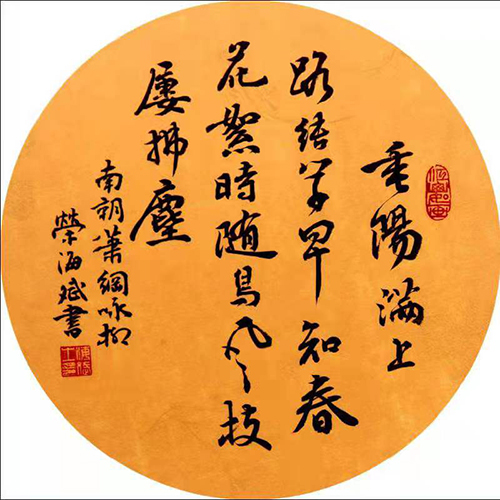 垂陽滿上
路結草早知春
花絮時随鳥風枝
屢拂塵
南朝蕭綱咏柳
榮海斌書